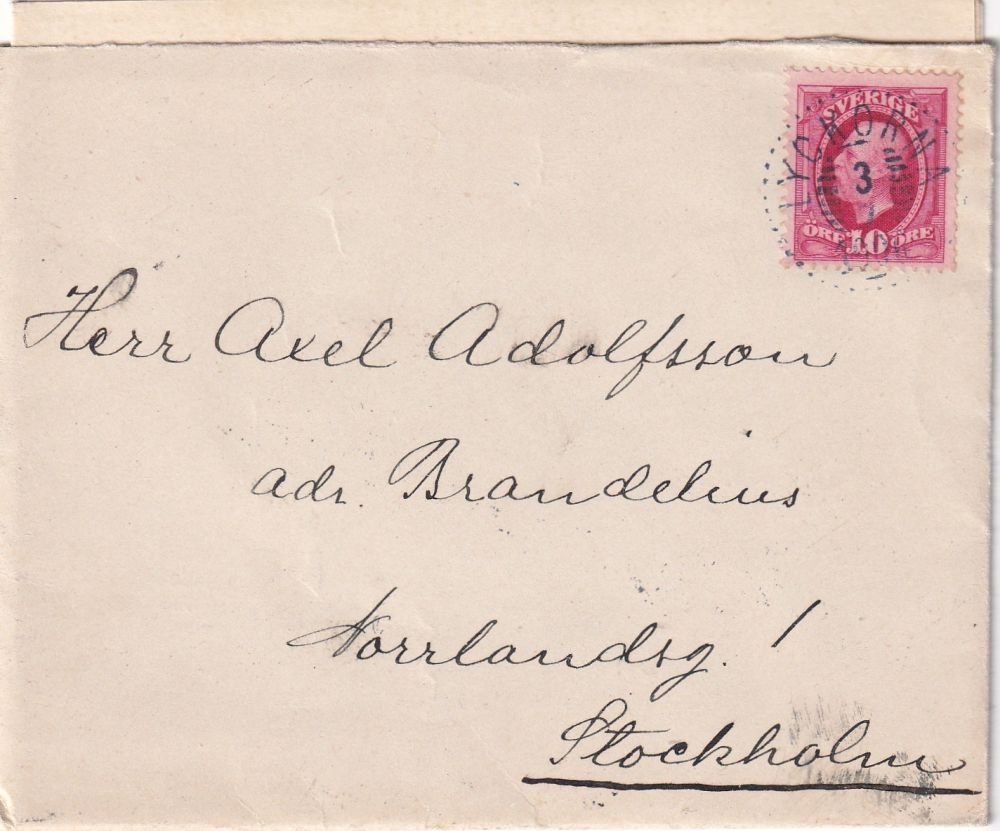 SVERIGE
LYCKORNA
3
ÖRE 10 ÖRE
Herr Axel Adolfsson
adr. Brandelius
Norrlandsg. 1
Stockholm